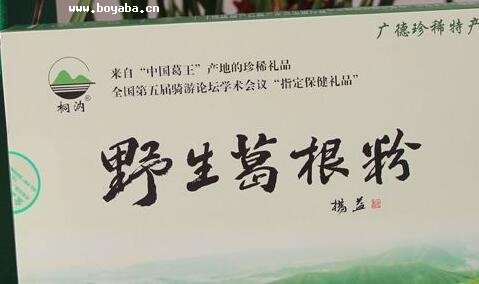 www.boyaba.cn
广德珍稀特产
来自“中国葛王”产地的珍稀礼品
全国第五届骑游论坛学术会议“指定保健礼品”
桐汭®
野生葛根粉
杨益